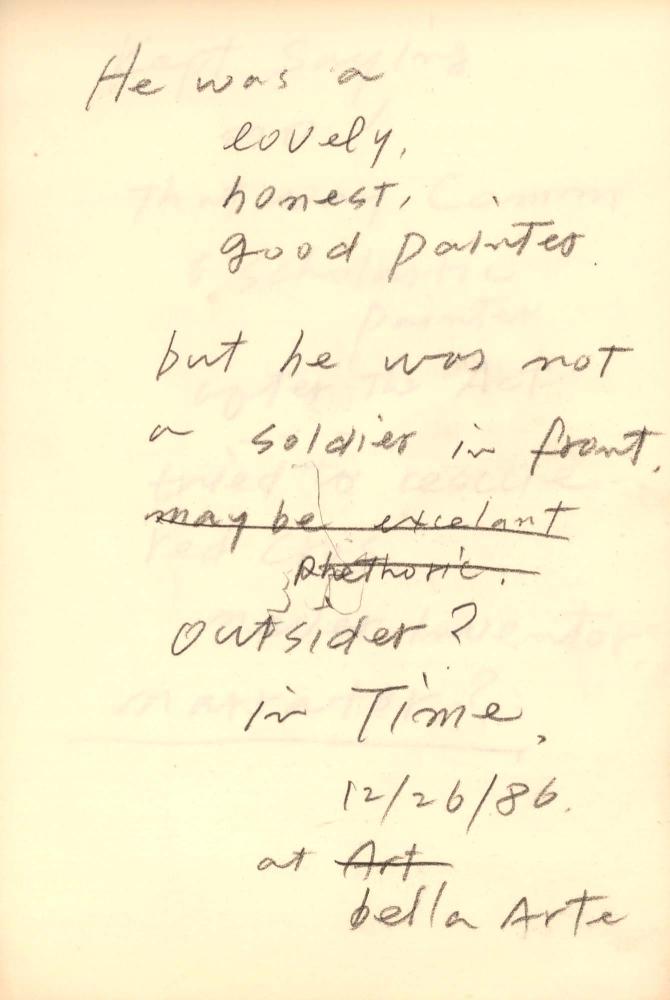 He was a
lovely,
honest,
good painter.
but he was not
a soldier in front.
may be excelant
Rhethoric.
outsider?
in Time,
12/26/86.
at Art
bella Arte